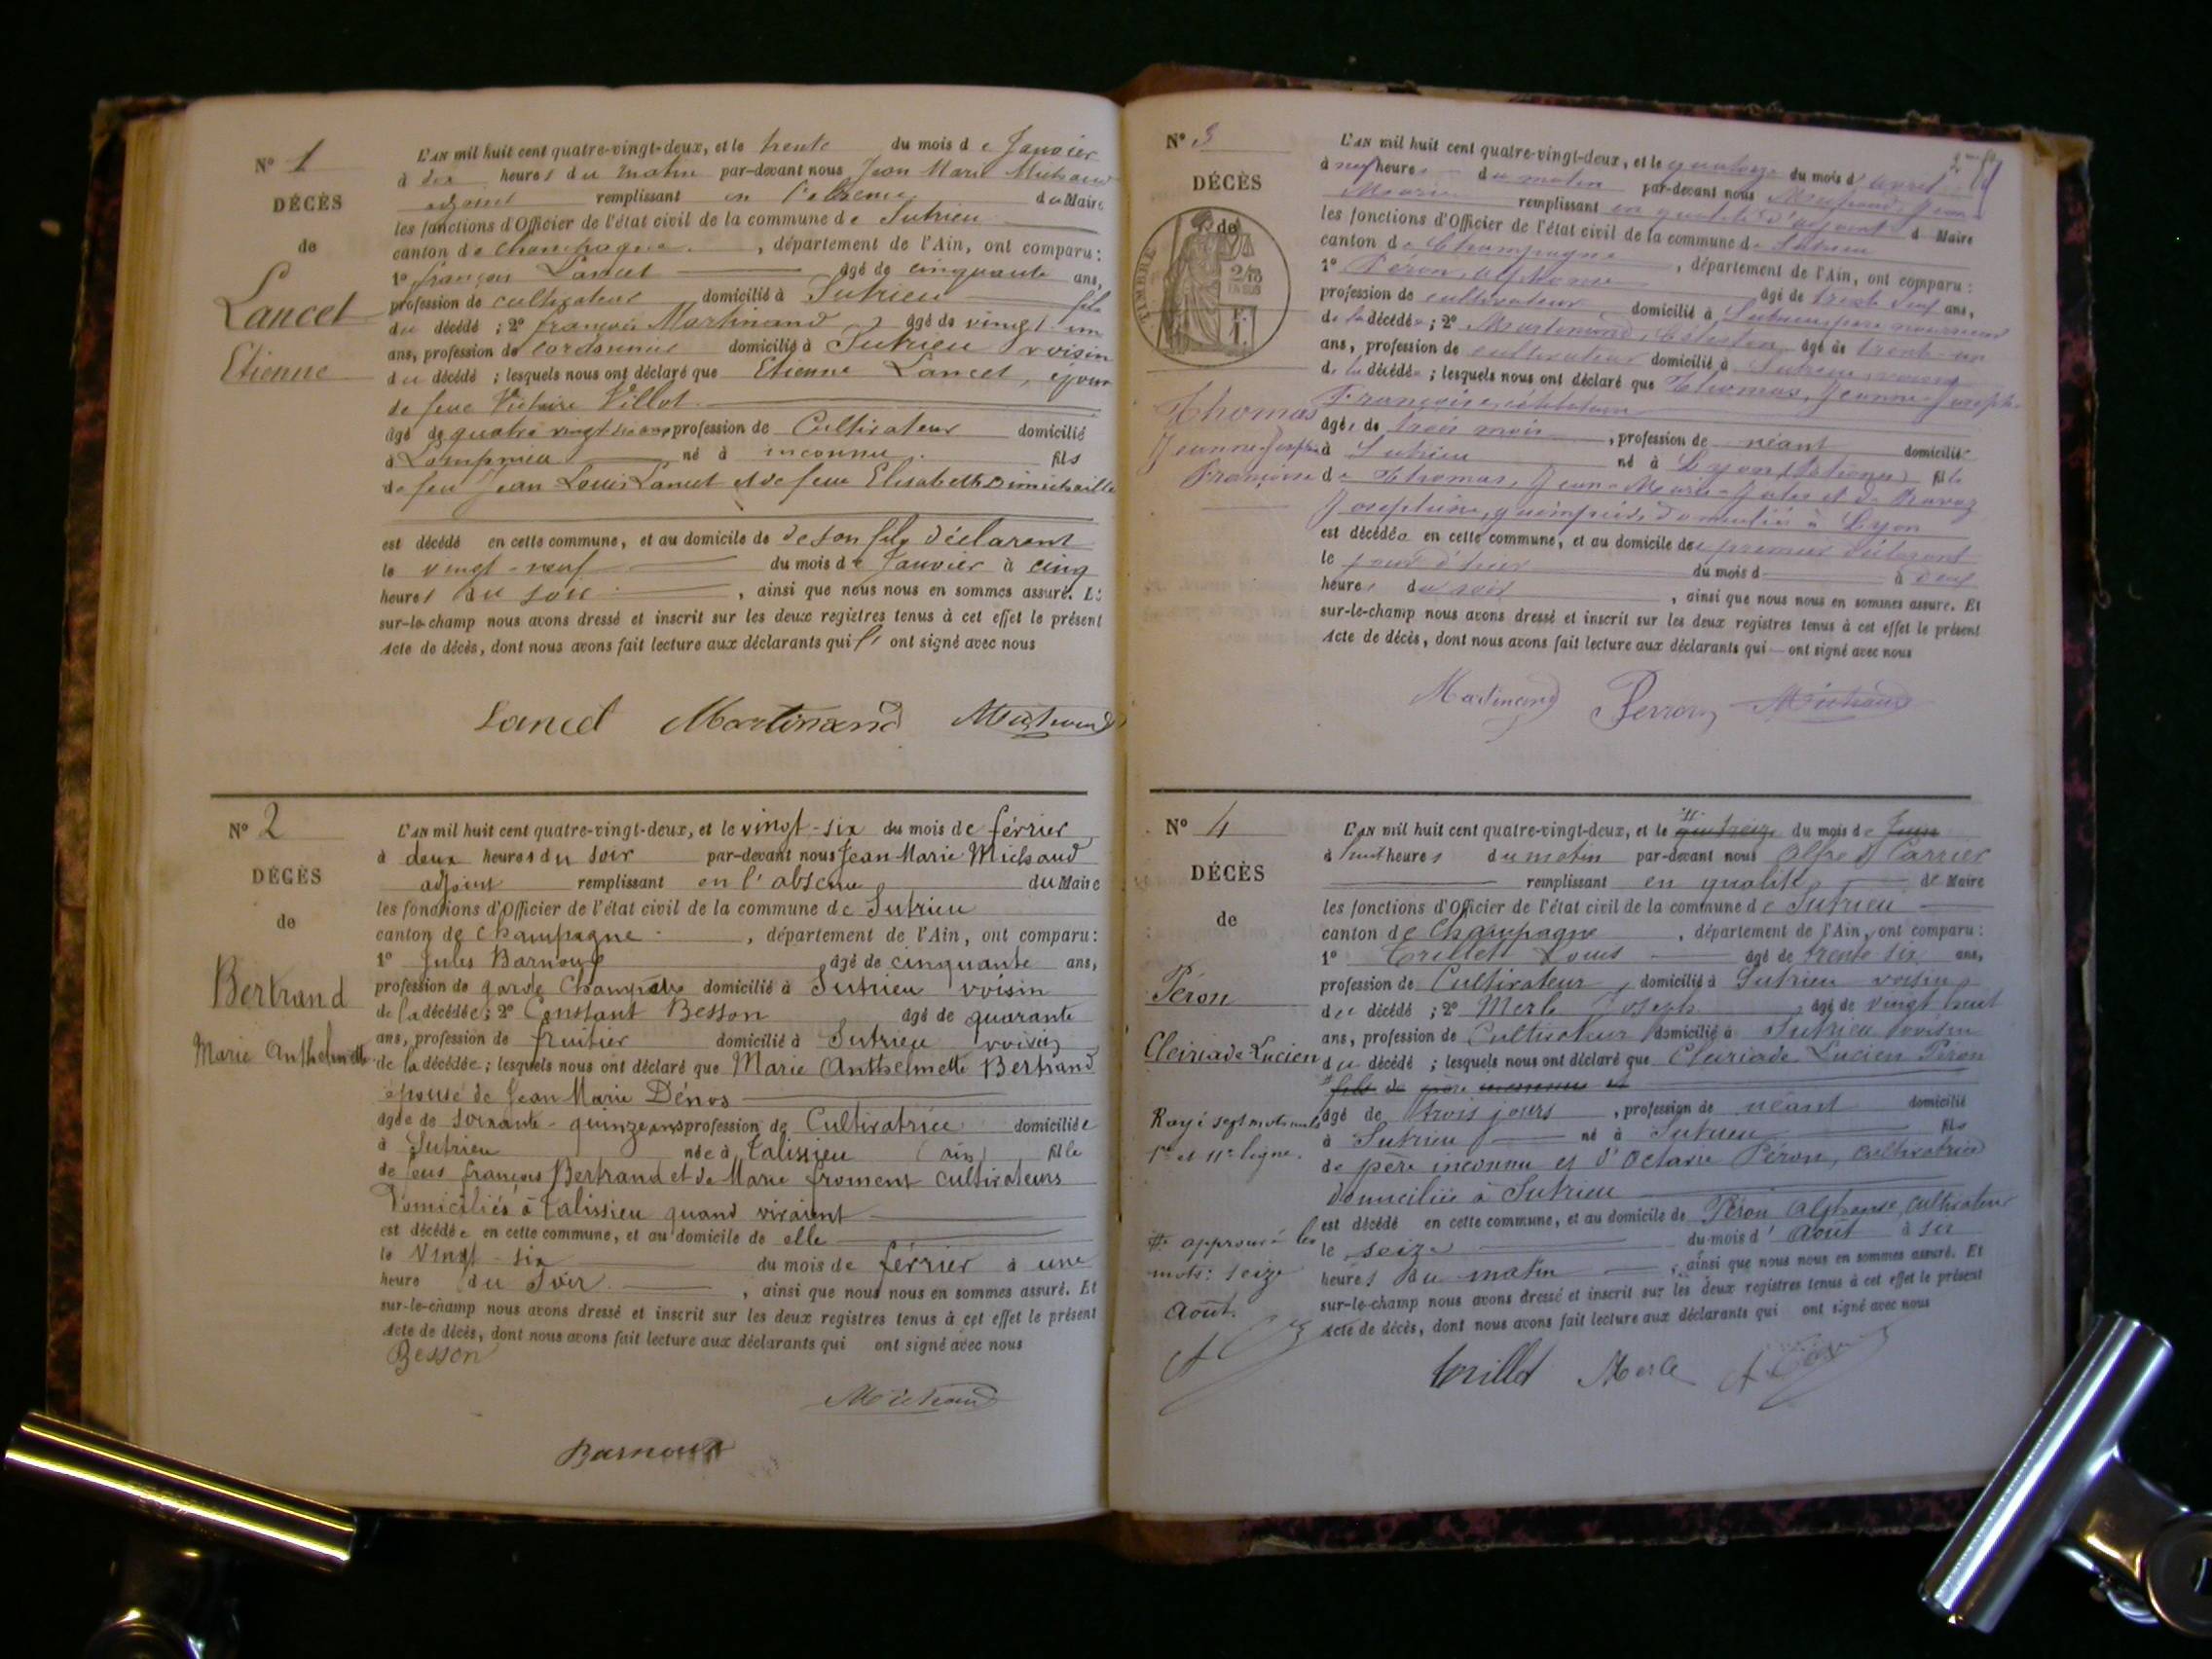 N° 1
DÉCÈS
de
Lancet
Etienne
L'AN mil huit cent quatre-vingt-deux, et le trente du mois de Janvier
à dix heures du matin par-devant nous Jean Marie Michaud
adjoint remplissant en l'absence du Maire
les fonctions d'Officier de l'état civil de la commune de Sutrieu
canton de Champagne, département de l'Ain, ont comparu:
1° françois Lancet âgé de cinquante ans,
profession de cultivateur domicilié à Sutrieu fils
du décédé ; 2° françois Martinand, âgé de vingt un
ans, profession de cordonnier domicilié à Sutrieu voisin
du décédé ; lesquels nous ont déclaré que Etienne Lancet, époux
de feue Victoire Villot
âgé de quatre vingt ans profession de Cultivateur domicilié
à Lompnieu né à inconnu fils
de feu Jean Louis Lancet et de feue Elisabeth
est décédé en cette commune, et au domicile de de son fils déclarant
le vingt-neuf du mois de Janvier à cinq
heures du soir, ainsi que nous nous en sommes assuré. Et
sur-le-champ nous avons dressé et inscrit sur les deux registres tenus à cet effet le présent
Acte de décès, dont nous avons fait lecture aux déclarants qui ont signé avec nous
Lancet Martinand Michaud
N° 2
DÉCÈS
de
Bertrand
Marie Anthelmette
L'AN mil huit cent quatre-vingt-deux, et le vingt-six du mois de février
à deux heures du soir par-devant nous Jean Marie Michaud
adjoint remplissant en l'absence du Maire
les fonctions d'Officier de l'état civil de la commune de Sutrieu
canton de Champagne, département de l'Ain, ont comparu:
1° Jules Barnoux âgé de cinquante ans,
profession de garde Champêtre domicilié à Sutrieu voisin
de la décédée ; 2° Constant Besson âgé de quarante
ans, profession de fruitier domicilié à Sutrieu voisin
de la décédée ; lesquels nous ont déclaré que Marie Anthelmette Bertrand
épouse de Jean Marie Dénos
âgée de soixante-quinze ans profession de Cultivatrice domiciliée
à Sutrieu née à Talissieu (ain) fille
de feus françois Bertrand et de Marie froment cultivateurs
Domiciliés à Talissieu quand vivaient
est décédée en cette commune, et au domicile de elle
le Vingt-six du mois de février à une
heure du soir, ainsi que nous nous en sommes assuré. Et
sur-le-champ nous avons dressé et inscrit sur les deux registres tenus à cet effet le présent
Acte de décès, dont nous avons fait lecture aux déclarants qui ont signé avec nous
Besson
Michaud
Barnoux
N° 3
DÉCÈS
de
TIMBRE
Thomas
Jeanne Josephe
Françoise
L'AN mil huit cent quatre-vingt-deux, et le quatorze du mois d'avril
à neuf heures du matin par-devant nous Michaud, Jean-
Marie remplissant en qualité d'adjoint d Maire
les fonctions d'Officier de l'état civil de la commune de Sutrieu
canton de Champagne, département de l'Ain, ont comparu:
1° Péron, Alphonse âgé de trente neuf ans,
profession de cultivateur domicilié à Sutrieu, père nourricier
de la décédée ; 2° Martinand, Célestin âgé de trente-un
ans, profession de cultivateur domicilié à Sutrieu, voisin
de la décédée ; lesquels nous ont déclaré que Thomas, Jeanne-Josephe-
Françoise, célibataire
âgée de trois mois, profession de néant domicilié
à Sutrieu né à Lyon (Rhône) fille
de Thomas, Jean-Marie-Jules et de
Joséphine, domiciliés à Lyon
est décédée en cette commune, et au domicile de premier déclarant
le jour d'hier du mois d à deux
heures du soir, ainsi que nous nous en sommes assuré. Et
sur-le-champ nous avons dressé et inscrit sur les deux registres tenus à cet effet le présent
Acte de décès, dont nous avons fait lecture aux déclarants qui ont signé avec nous
Martinand Perron Michaud
N° 4
DÉCÈS
de
Péron
Cleiriade Lucien
Rayé sept mots nuls
1re et 11e ligne.
approuvé les
mots: seize
Août.
L'AN mil huit cent quatre-vingt-deux, et le du mois de Juin
à huit heures du matin par-devant nous Alfred Carrier
remplissant en qualité de Maire
les fonctions d'Officier de l'état civil de la commune de Sutrieu
canton de Champagne, département de l'Ain, ont comparu:
1° Trillet Louis âgé de trente six ans,
profession de Cultivateur, domicilié à Sutrieu voisin
du décédé ; 2° Merle Joseph âgé de vingt huit
ans, profession de Cultivateur domicilié à Sutrieu voisin
du décédé ; lesquels nous ont déclaré que Cleiriade Lucien Péron
fils de père inconnu et
âgé de trois jours, profession de néant domicilié
à Sutrieu né à Sutrieu fils
de père inconnu et d'Octavie Péron, cultivatrice
domiciliée à Sutrieu
est décédé en cette commune, et au domicile de Péron Alphonse, cultivateur
le seize du mois d'Août à six
heures du matin, ainsi que nous nous en sommes assuré. Et
sur-le-champ nous avons dressé et inscrit sur les deux registres tenus à cet effet le présent
Acte de décès, dont nous avons fait lecture aux déclarants qui ont signé avec nous
Trillet Merle